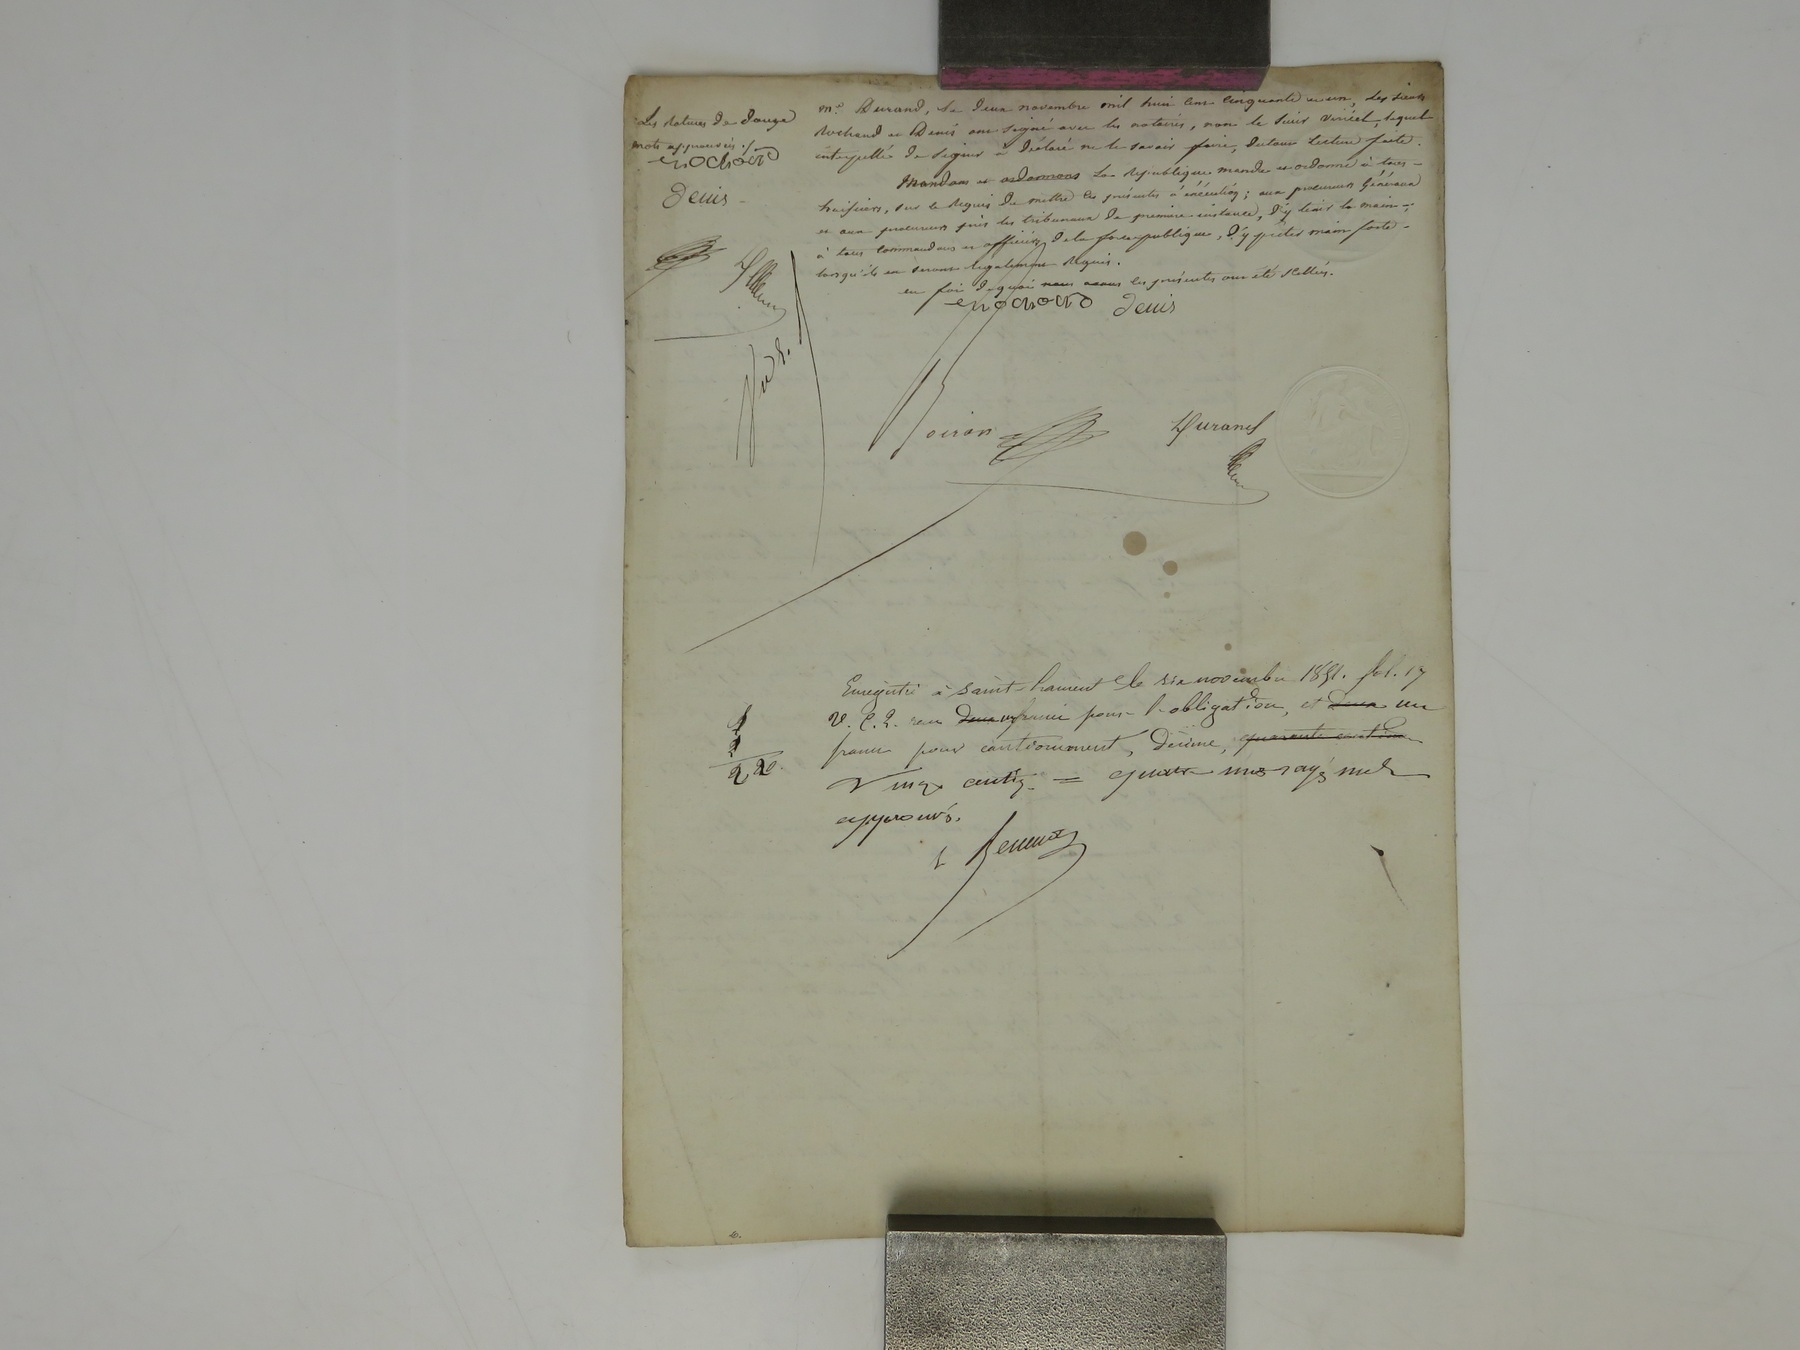 Les ratures de douze
mots approuvés ./.
enochard
Denis
mᵉ Durand, le deux novembre mil huit cent cinquante et un, Les sieurs
Rochard et Denis ont signé avec les notaires, non le sieur Viricel, lequel
interpellé de signer a déclaré ne le savoir faire, du tout lecture faite.
Mandons et ordonnons La République mande et ordonne à tous
huissiers, sur ce requis de mettre les présentes à exécution; aux procureurs Généraux
et aux procureurs près les tribunaux de première instance, d'y tenir la main;
à tous commandans et officiers de la force publique, d'y prêter main forte
lorsqu'ils en seront légalement requis.
en foi de quoi nous avons les présentes ont été scellées.
enochard Denis
Boiron Durand
Enregistré à Saint-Laurent le six novembre 1851. fol. 17
V. C. 2. reçu deux un franc pour l'obligation, et deux un
franc pour cautionnement, décime, quarante centimes
Vingt centis. = quatre mots rayés nuls
approuvés.
1
1
2 20.